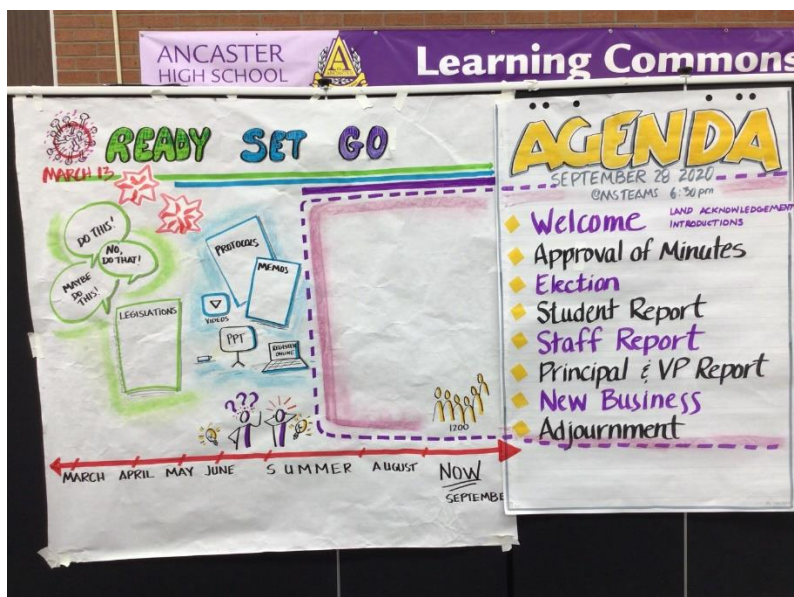 ANCASTER
HIGH SCHOOL
Learning Commons
READY SET GO
MARCH 13
DO THIS!
NO,
DO THAT!
MAYBE
DO
THIS!
LEGISLATIONS
PROTOCOLS
MEMOS
VIDEOS
PPT
ONLINE
???
1200
MARCH APRIL MAY JUNE SUMMER AUGUST NOW
SEPTEMBER
AGENDA
SEPTEMBER 28 2020
@MSTEAMS 6:30pm
Welcome
LAND ACKNOWLEDGEMENT
INTRODUCTIONS
Approval of Minutes
Election
Student Report
Staff Report
Principal & VP Report
New Business
Adjournment